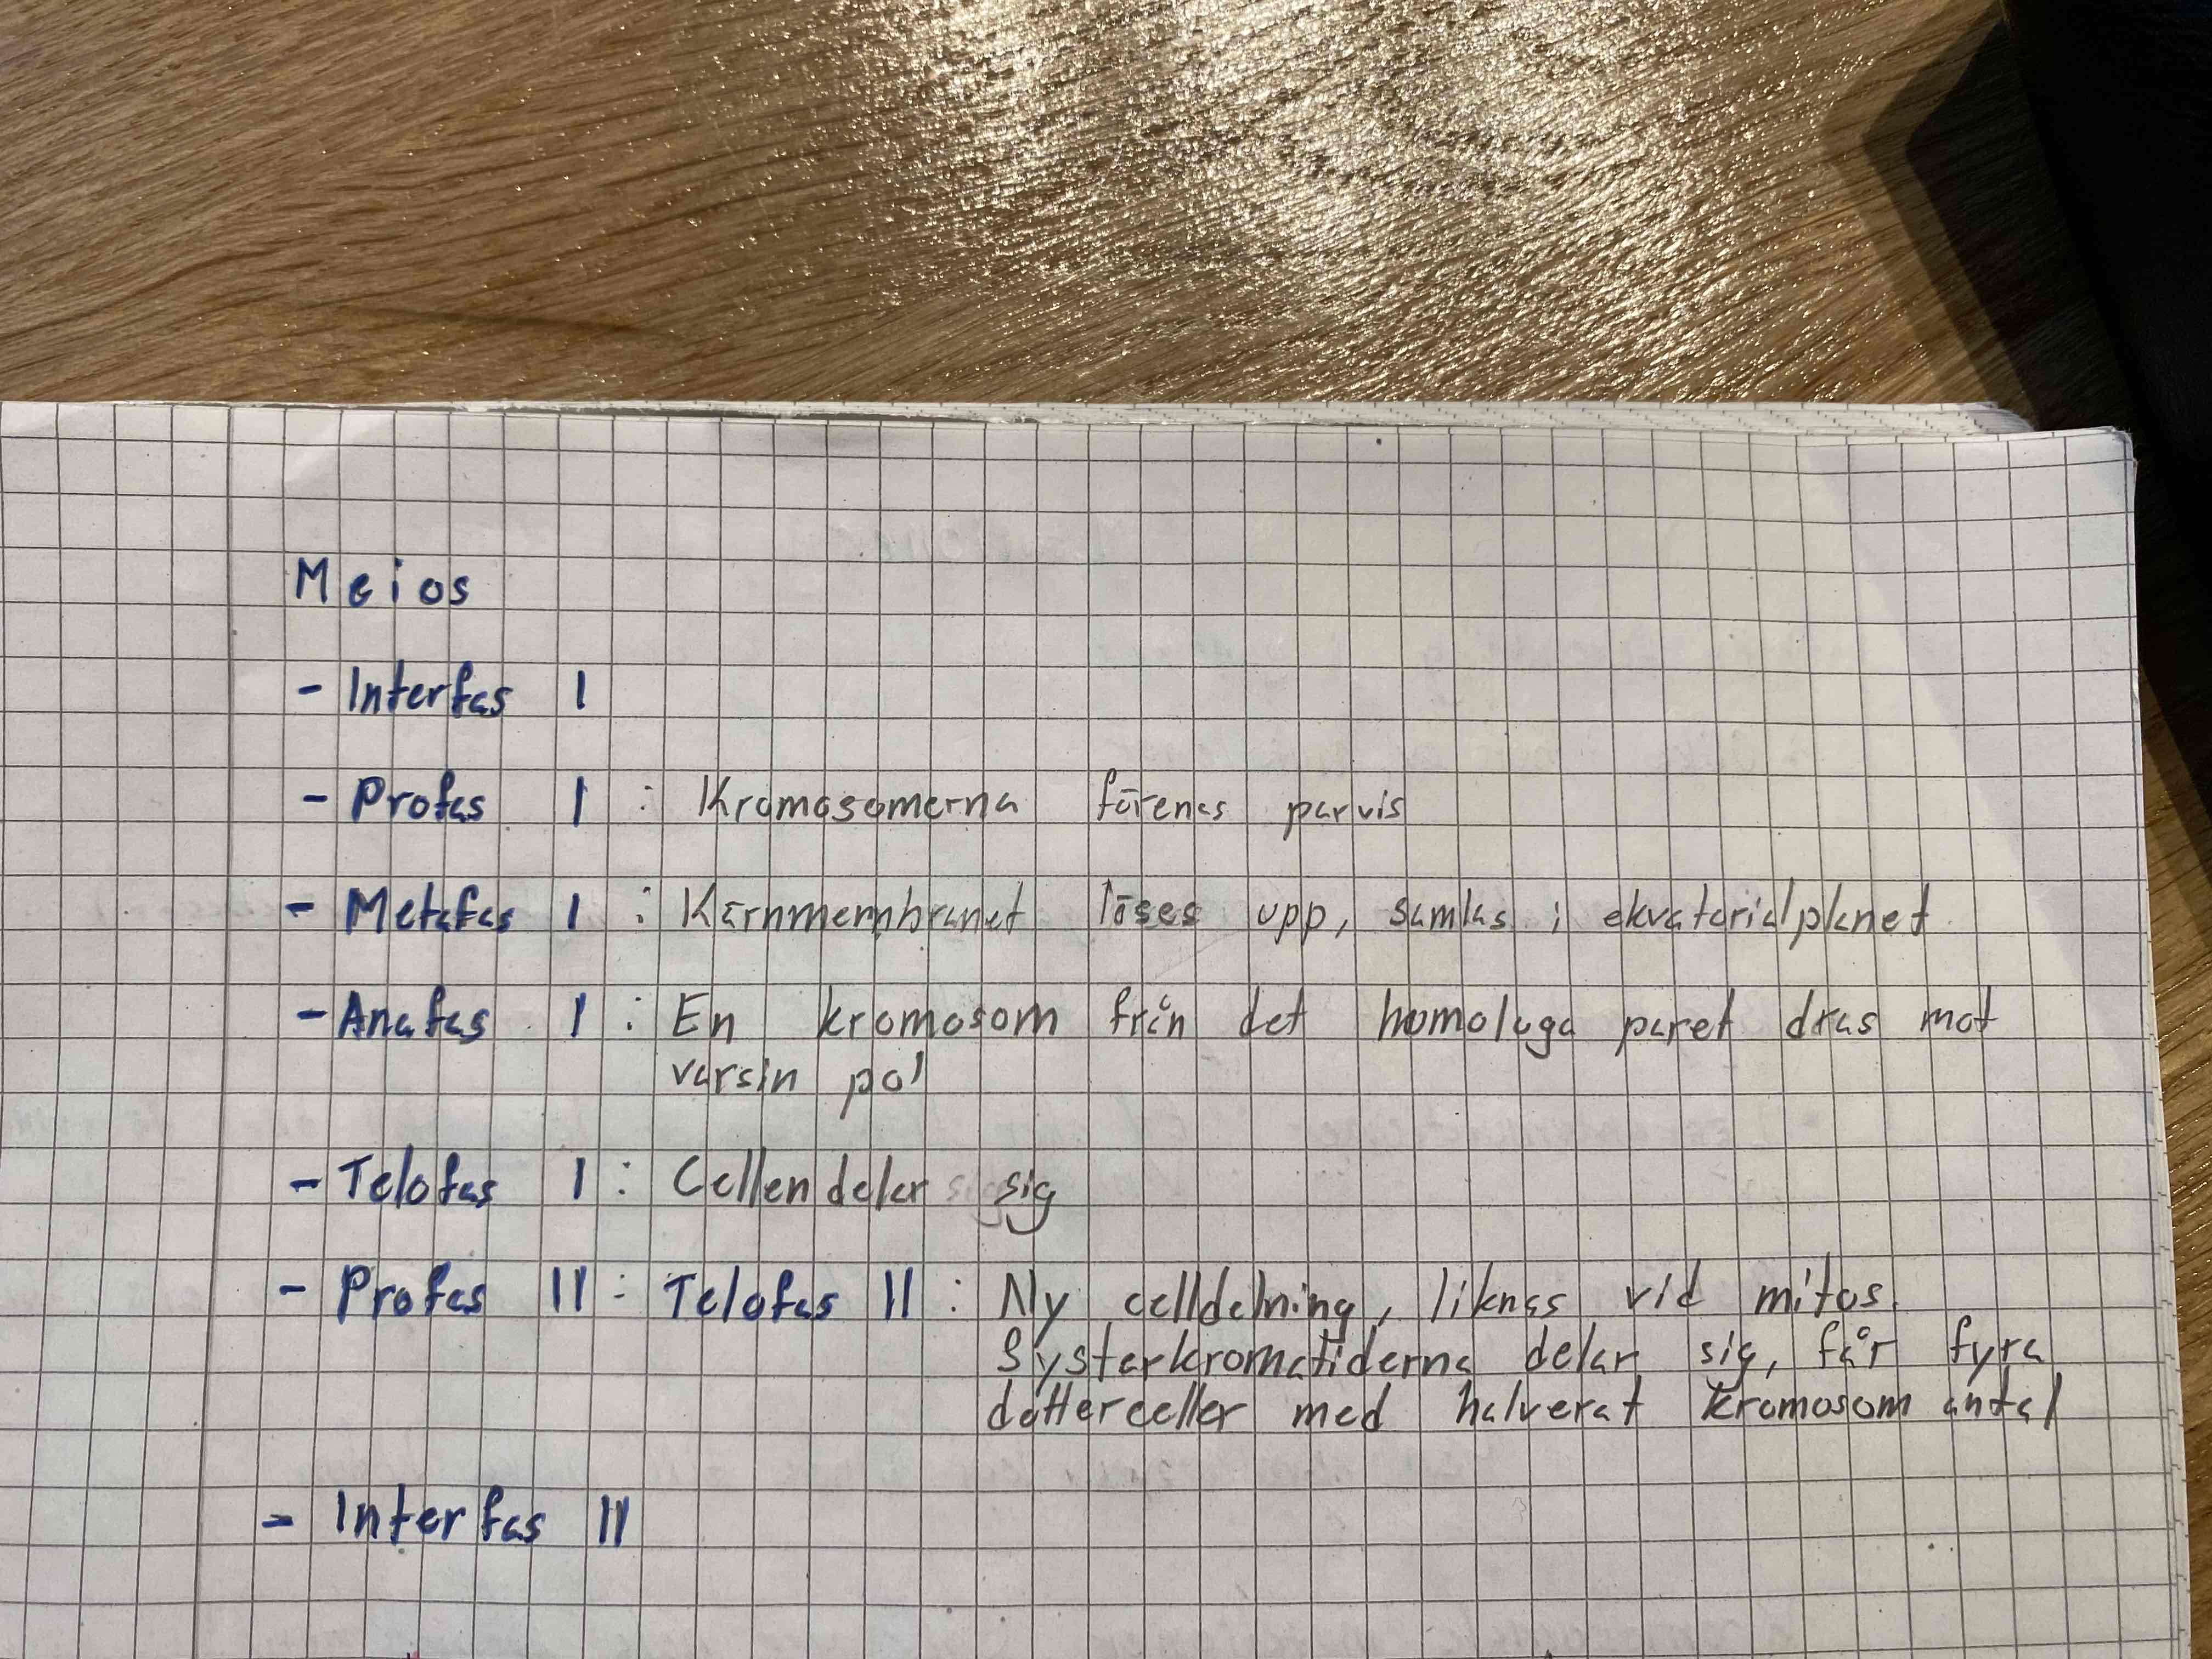 Meios
- Interfas I
- Profas I : Kromosomerna förenas parvis
- Metafas I : Kärnmembranet löses upp, samlas i ekvatorialplanet
- Anafas I : En kromosom från det homologa paret dras mot
varsin pol
- Telofas I : Cellen delar sig
- Profas II : Telofas II : Ny celldelning, liknas vid mitos.
Systerkromatiderna delar sig, får fyra
dotterceller med halverat kromosom antal
- Interfas II